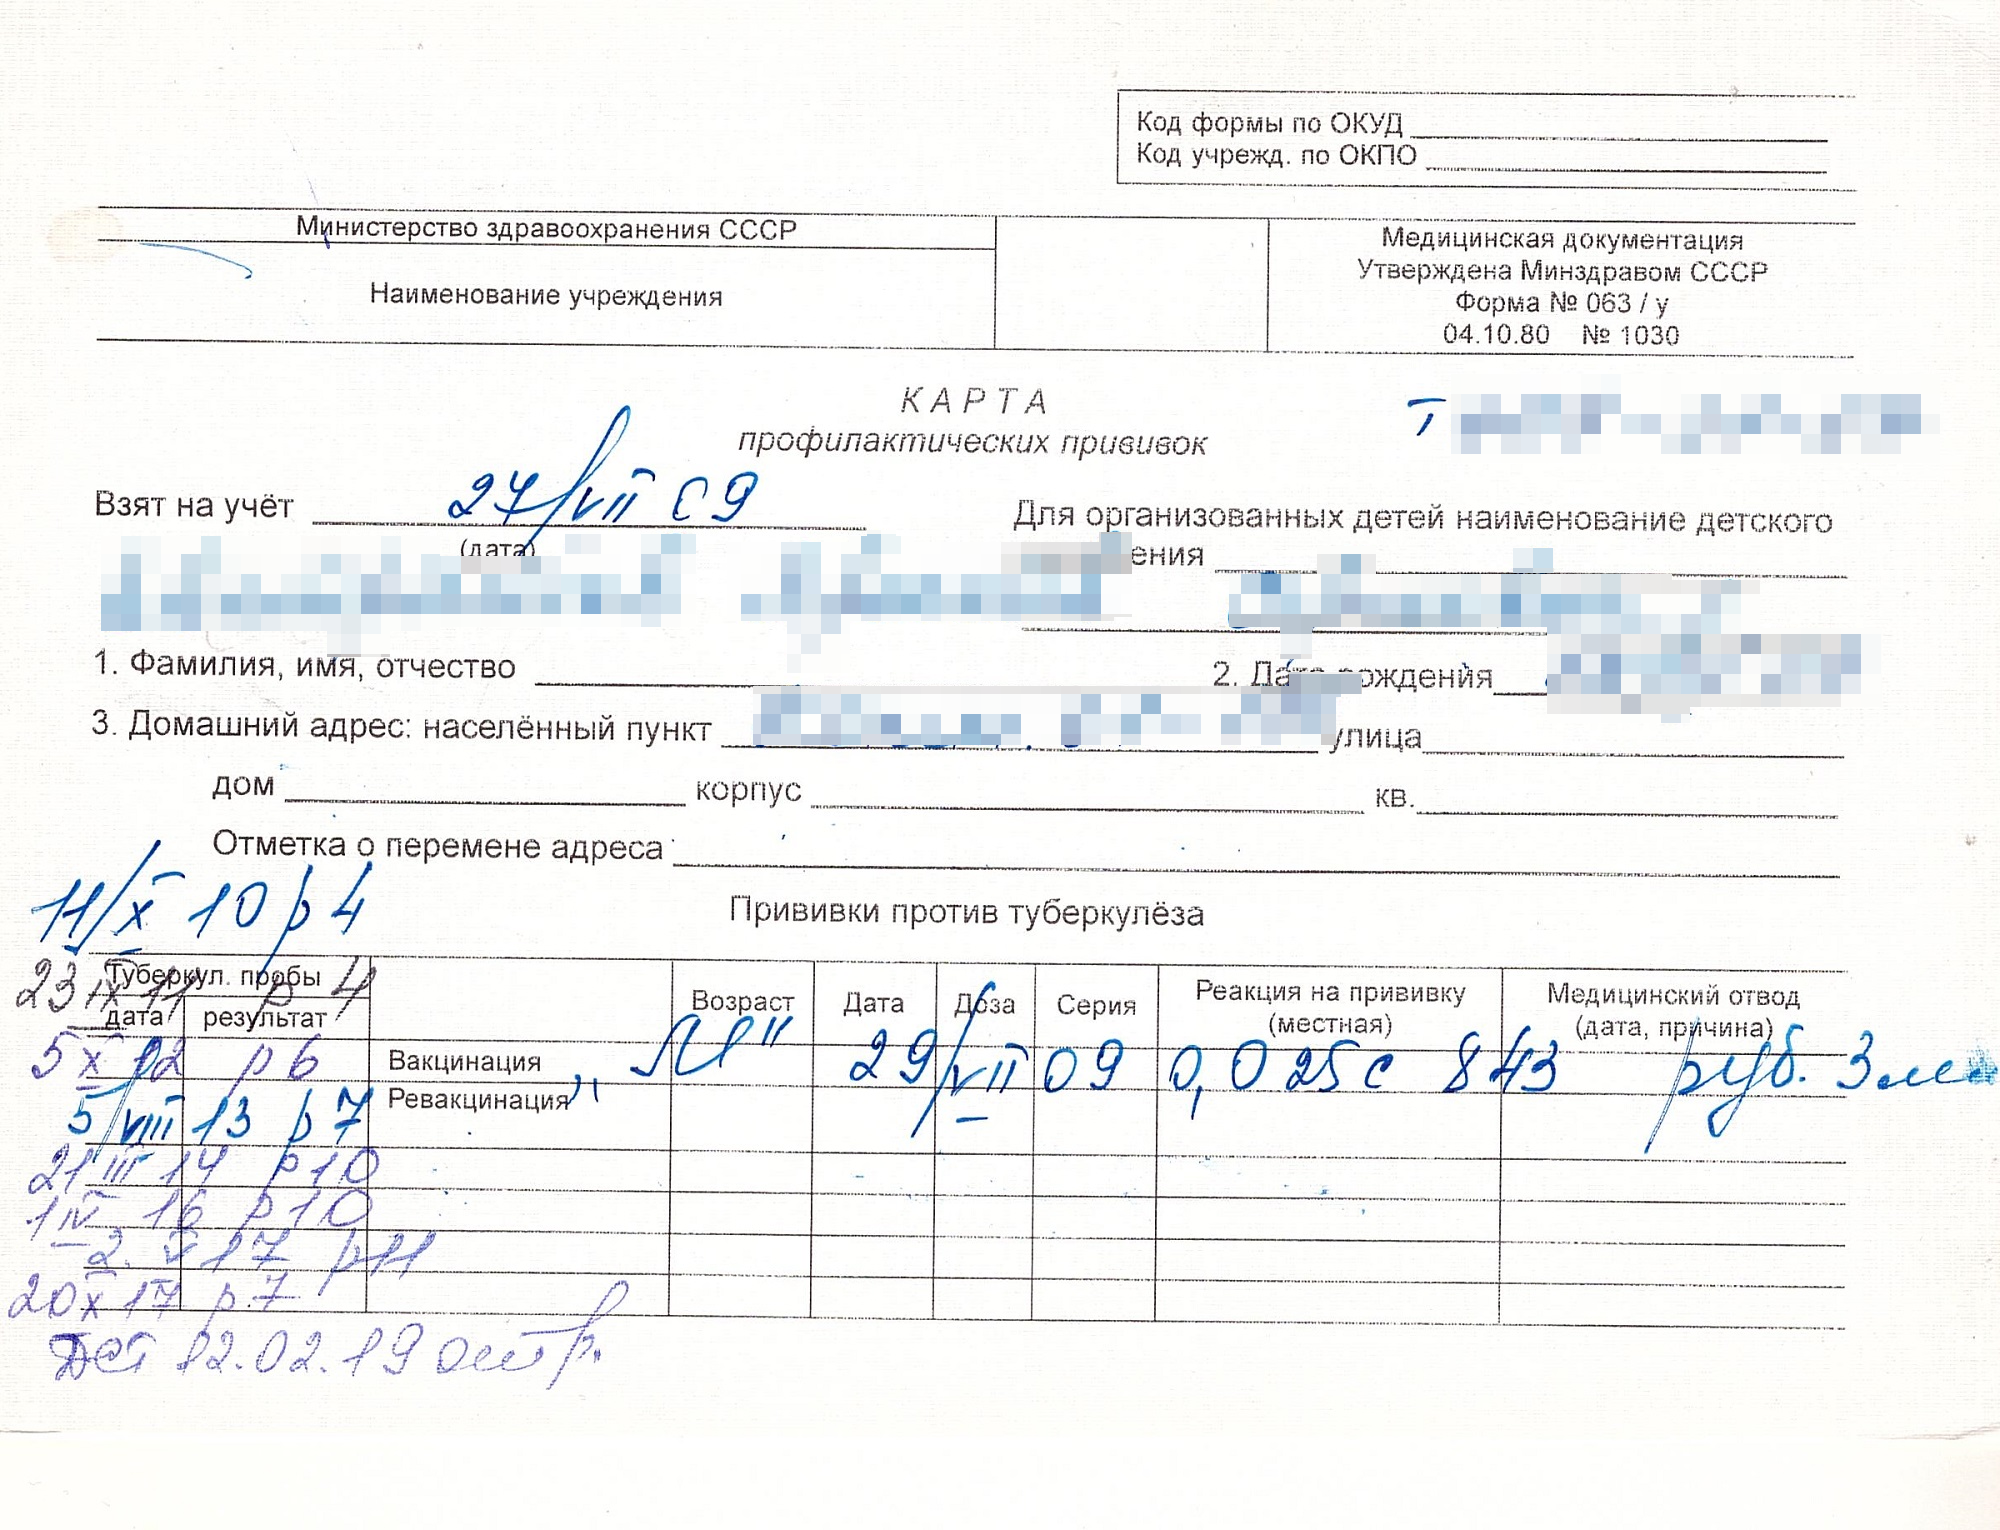 Код формы по ОКУД
Код учрежд. по ОКПО
Министерство здравоохранения СССР
Наименование учреждения
Медицинская документация
Утверждена Минздравом СССР
Форма № 063 / у
04.10.80 № 1030
КАРТА
профилактических прививок
Взят на учёт 27/VII 09
(дата)
Для организованных детей наименование детского
ения
1. Фамилия, имя, отчество
2. Дата рождения
3. Домашний адрес: населённый пункт улица
дом корпус кв.
Отметка о перемене адреса
11/X 10 р 4
Прививки против туберкулёза
Туберкул. пробы
23 IX 11 р 4
дата результат Возраст Дата Доза Серия Реакция на прививку (местная) Медицинский отвод (дата, причина)
5 X 12 р 6
Вакцинация „М" 29/VII 09 0,025 с 843 руб. 3 мм
Ревакцинация
5/VIII 13 р 7
21 III 14 р 10
1 IV 16 р 10
2. V 17 р 11
20 X 17 р. 7
12.02.19 отр.